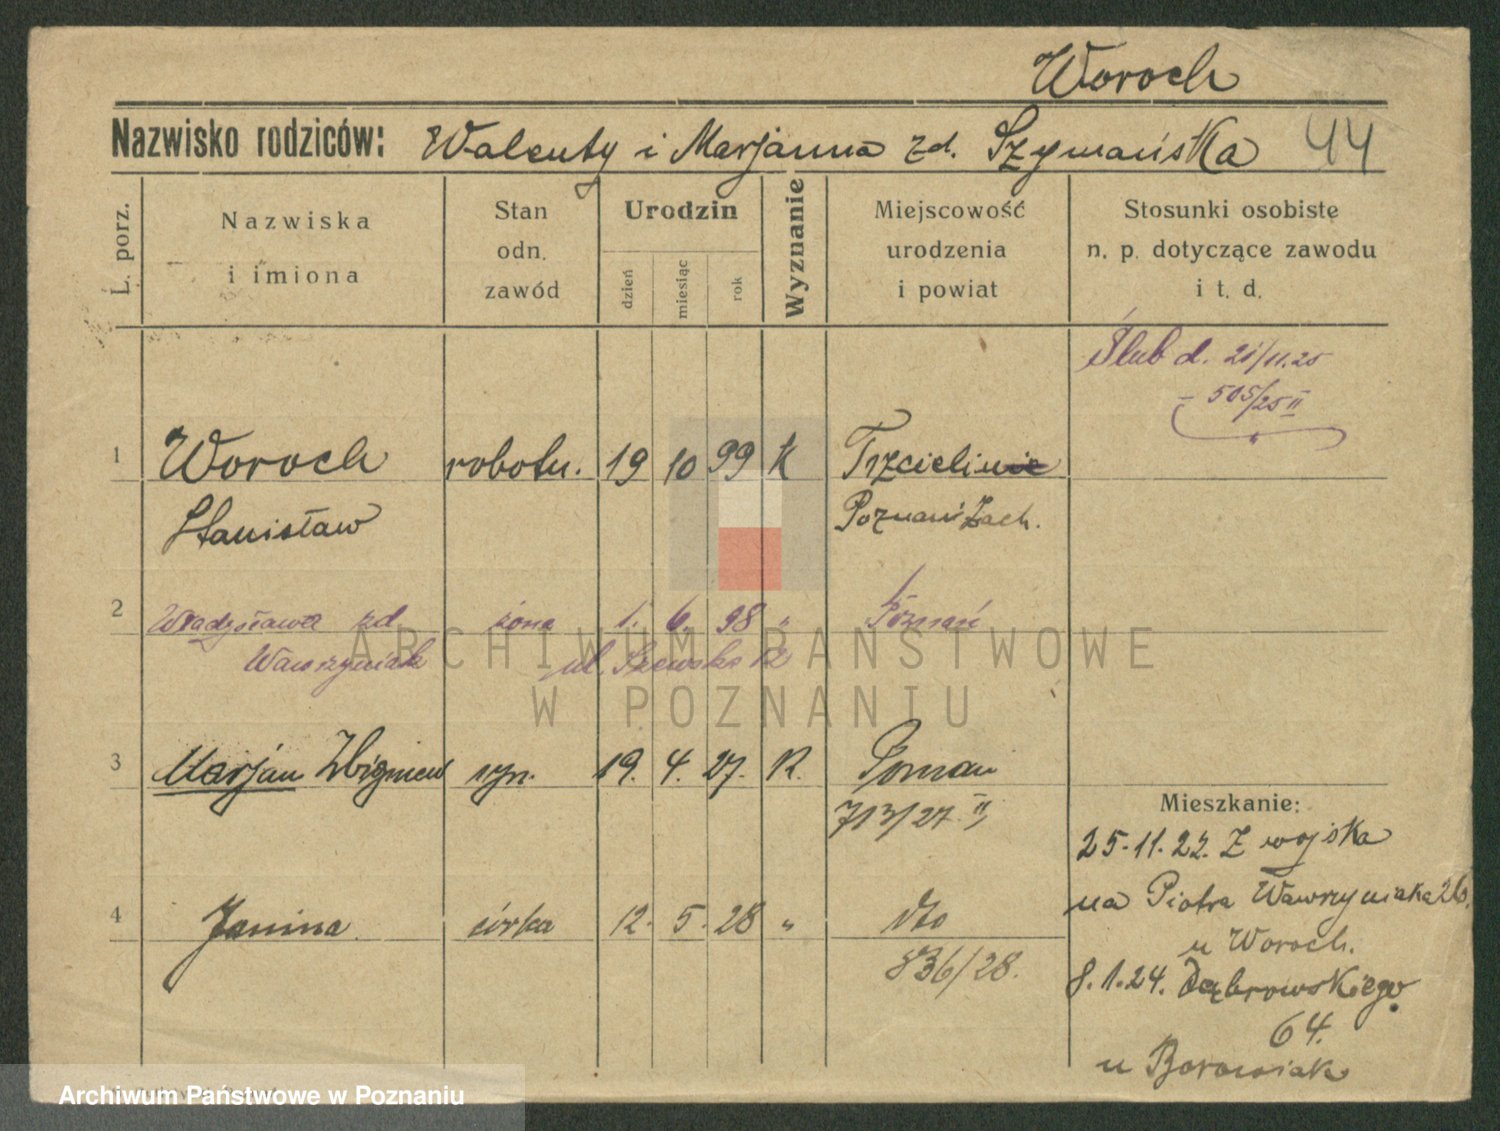 Woroch
Nazwisko rodziców: Walenty i Marjanna zd. Szymańska 44
L. porz.
Nazwiska
i imiona
Stan
odn.
zawód
Urodzin
dzień
miesiąc
rok
Wyznanie
Miejscowość
urodzenia
i powiat
Stosunki osobiste
n. p. dotyczące zawodu
i t. d.
Ślub d. 21/11.25
505/25 II
1 Woroch robotn. 19 10 99 K Trzcielinie
Stanisław Poznań Zach.
2 Władysława zd żona 1. 6. 98 " Poznań
Wawrzyniak ul. Szewska 12
3 Marjan Zbigniew syn. 19. 4. 27. R. Poznań
713/27 II
4 Janina córka 12. 5. 28 " dto
836/28.
Mieszkanie:
25.11.22. Z wojska
na Piotra Wawrzyniaka 26.
u Woroch.
8.1.24. Dąbrowskiego
64.
u Borowiak
ARCHIWUM PAŃSTWOWE
W POZNANIU
Archiwum Państwowe w Poznaniu